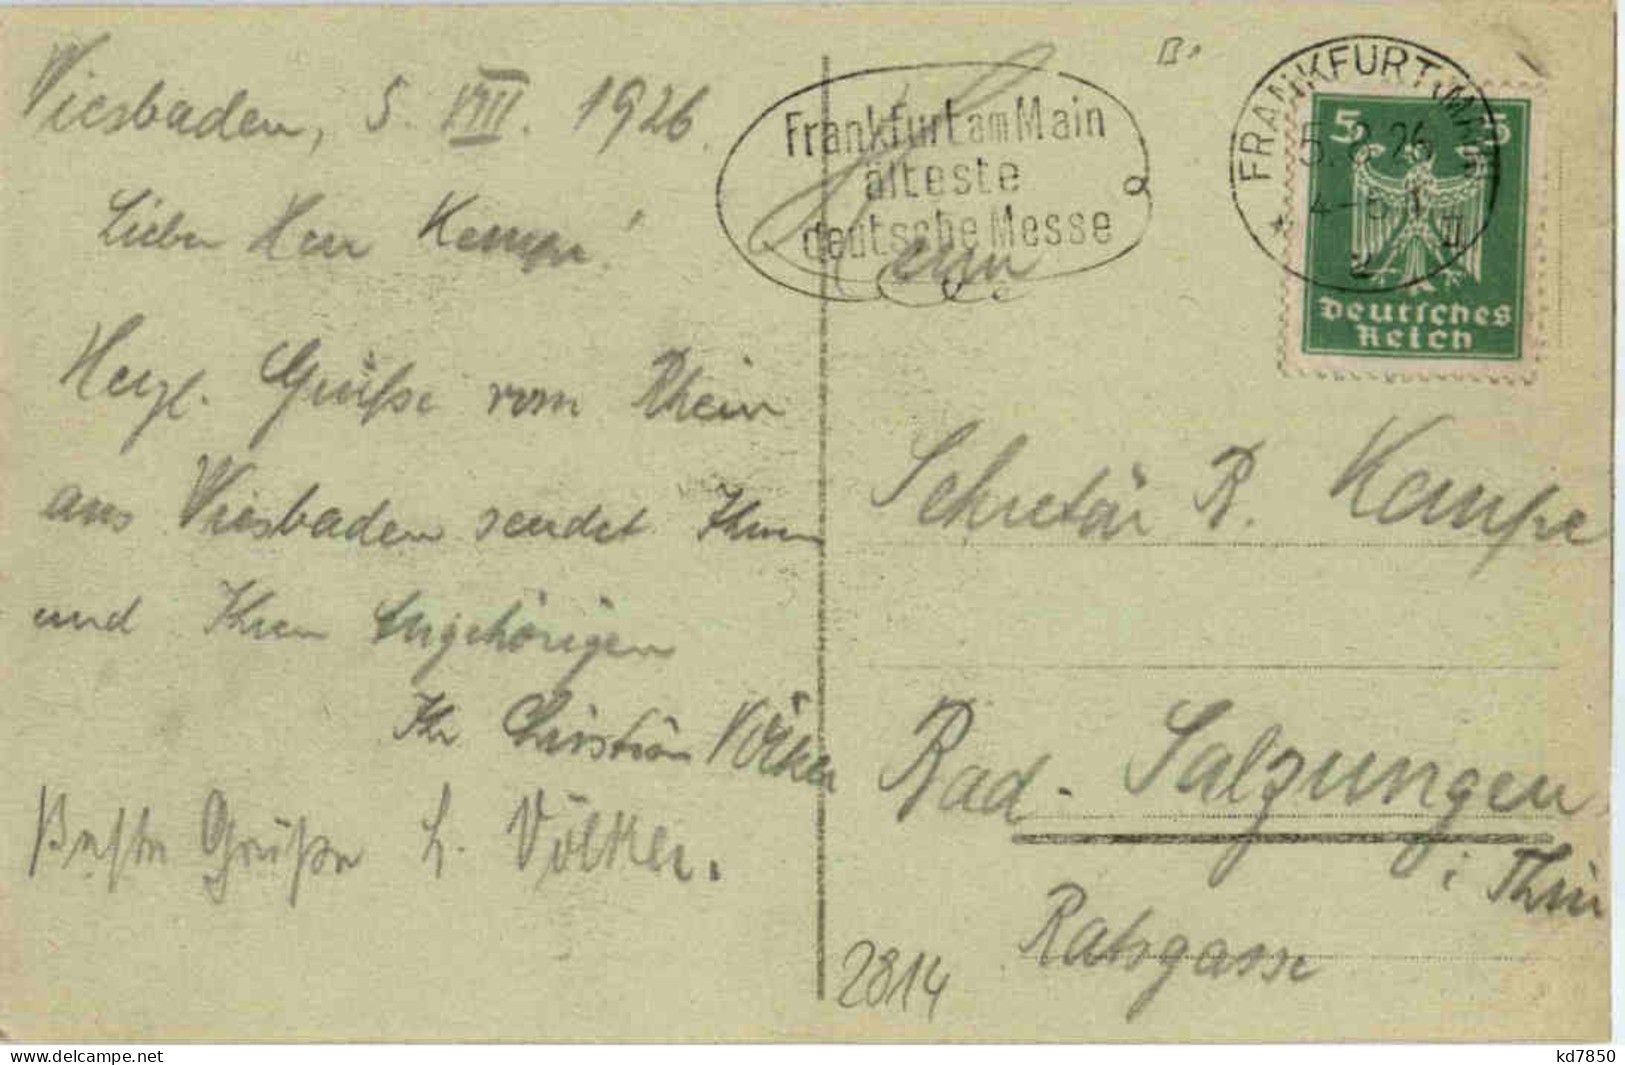 Wiesbaden, 5. VIII. 1926.
Lieber Herr Kempe!
Herzl. Grüße vom Rhein
aus Wiesbaden sendet Ihnen
und Ihren Angehörigen
Ihr Christian Völker
Beste Grüße L. Völker.
Frankfurt am Main
älteste
deutsche Messe
Herrn
FRANKFURT (MAIN)
5.8.26
5 5
Deutsches
Reich
Sekretär R. Kempe
Bad-Salzungen
i. Thür
Ratsgasse
2814
kd7850